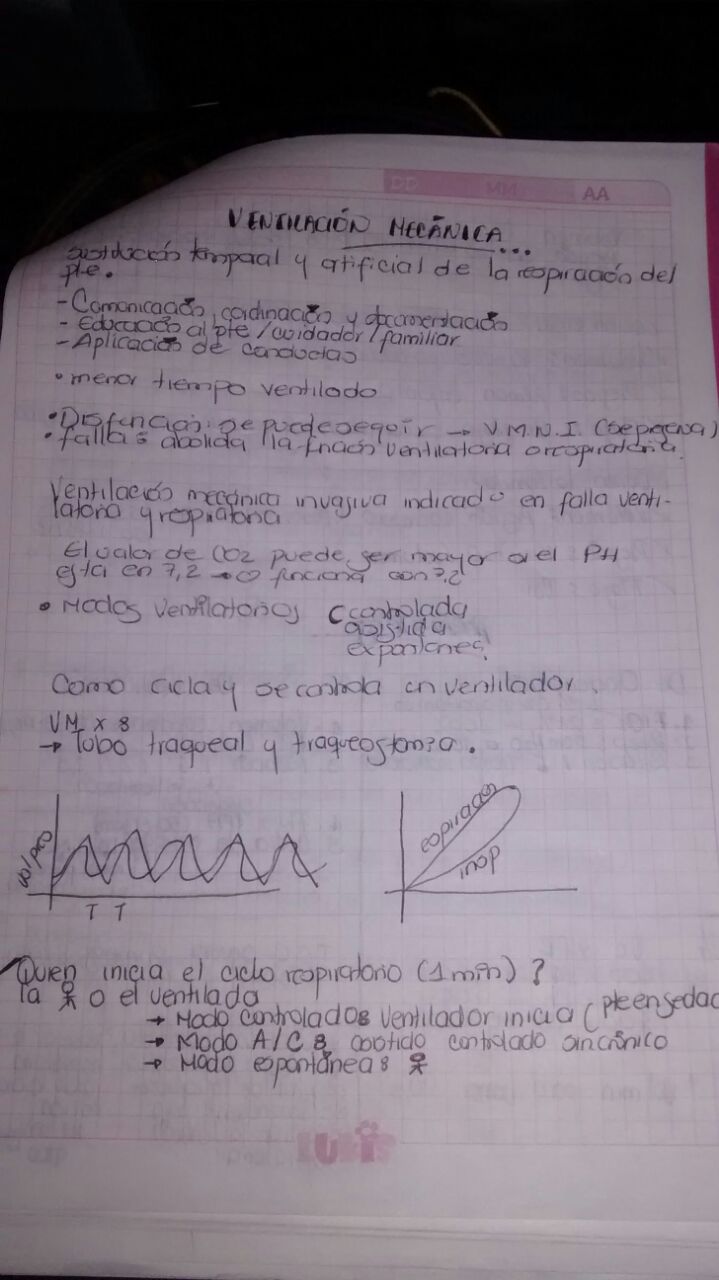 DD MM AA
VENTILACIÓN MECÁNICA...
sustitución temporal y artificial de la respiración del
pte.
- Comunicación, cordinación y documentación
- Educación al pte/cuidador/familiar
- Aplicación de conductas
• menor tiempo ventilado
• Disfunción: se puede seguir → V.M.N.I. (
• falla: abolida la función ventilatoria o respiratoria.
Ventilación mecánica invasiva indicado en falla venti-
latoria y respiratoria
El valor de CO2 puede ser mayor si el PH
esta en 7,2 → funciona con 7,2
• Modos ventilatorios controlada
asistida
espontanea
Como cicla y se controla un ventilador.
VM x :
→ Tubo traqueal y traqueostomia.
vol/pre
T T
espiración
insp
Quien inicia el ciclo respiratorio (1 min)?
la o el ventilada
→ Modo controlado: ventilador inicia (pte en sedac
→ Modo A/C: asistido controlado sincrónico
→ Modo espontánea:
LUKIS